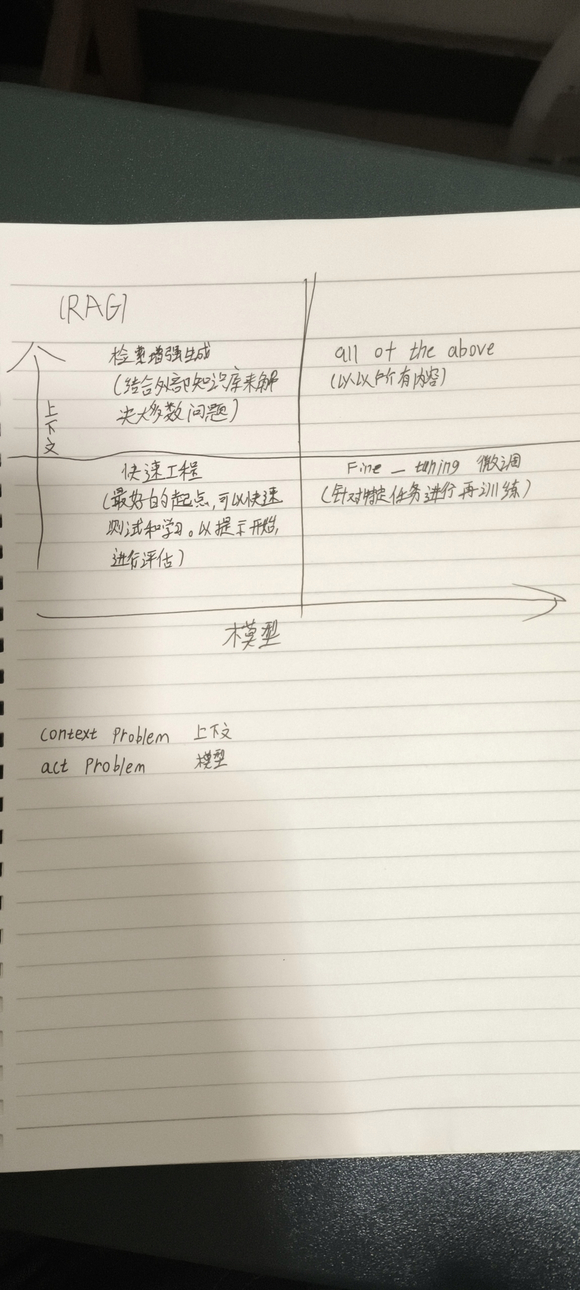 (RAG)
检索增强生成
(结合外部知识库来解
决大多数问题)
all of the above
(以以上所有内容)
上下文
快速工程
(最好的的起点,可以快速
测试和学习。以提示开始,
进行评估)
Fine - tuning 微调
(针对特定任务进行再训练)
模型
context Problem 上下文
act Problem 模型